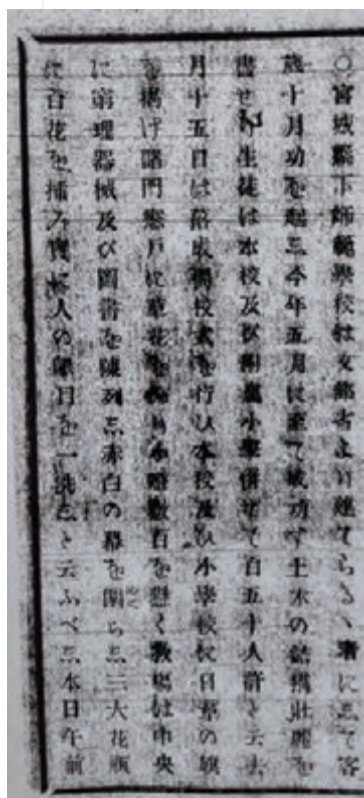 ○宮城縣下師範學校は文部省より建てらるゝ者にして客
歳十月功を起し今年五月に至て成功す土木の結搆壯麗を
書せり生徒は本校及び附屬小學併せて百五十人許と云去
月十五日は落成開校式を行ひ本校及び小學校に日章の旗
を揚げ諸門窓戸に草花を飾り小燈數百を懸く教場は中央
に窮理器械及び圖書を陳列し赤白の幕を開らし三大花瓶
に百花を挿み實に人の眼目を一洗しと云ふべし本日午前